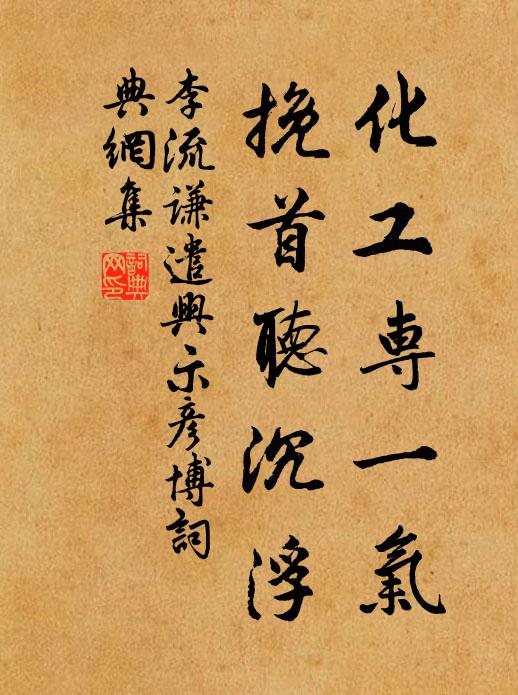 化工専一氣
挽首聽沉浮
李流謙遣興示彥博詞
典網集
詞典網印